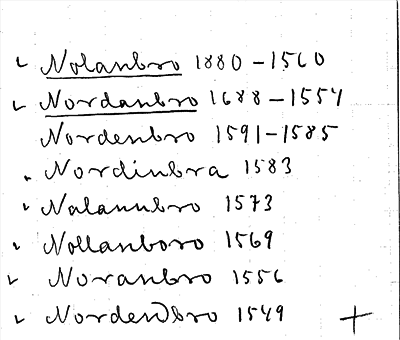 ✓ Nolanbro 1880-1560
✓ Nordanbro 1688-1554
Nordenbro 1591-1585
. Nordinbra 1583
✓ Nalanubro 1573
✓ Nollanboro 1569
✓ Noranbro 1556
✓ Nordendbro 1549 +